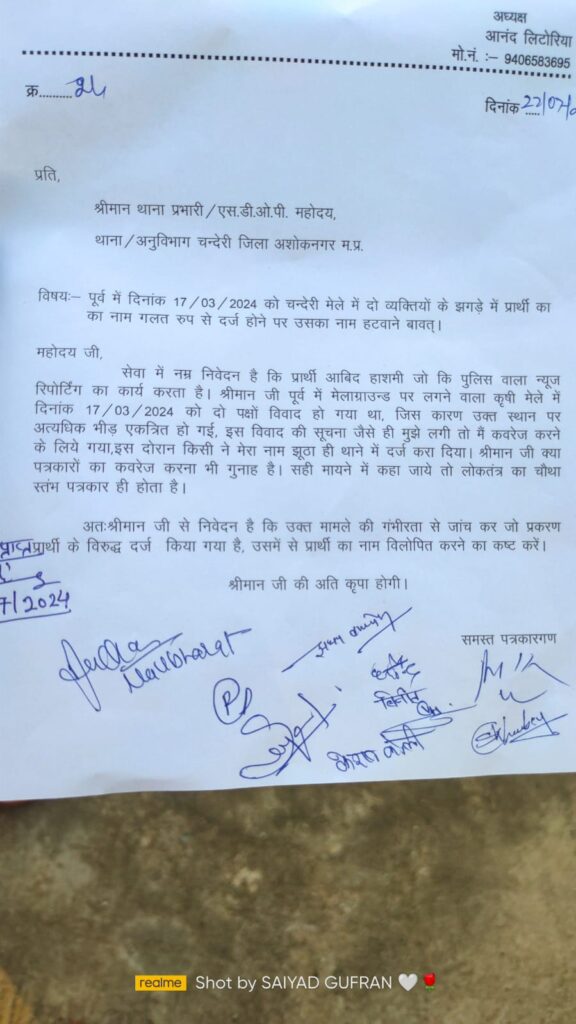 अध्यक्ष
आनंद लिटोरिया
मो.नं. :– 9406583695
क्र.......... 24
दिनांक ..... 22/07/2
प्रति,
श्रीमान थाना प्रभारी/एस.डी.ओ.पी. महोदय,
थाना/अनुविभाग चन्देरी जिला अशोकनगर म.प्र.
विषयः– पूर्व में दिनांक 17/03/2024 को चन्देरी मेले में दो व्यक्तियों के झगड़े में प्रार्थी का
का नाम गलत रुप से दर्ज होने पर उसका नाम हटवाने बावत्।
महोदय जी,
सेवा में नम्र निवेदन है कि प्रार्थी आबिद हाशमी जो कि पुलिस वाला न्यूज
रिपोर्टिंग का कार्य करता है। श्रीमान जी पूर्व में मेलाग्राउन्ड पर लगने वाला कृषी मेले में
दिनांक 17/03/2024 को दो पक्षों विवाद हो गया था, जिस कारण उक्त स्थान पर
अत्यधिक भीड़ एकत्रित हो गई, इस विवाद की सूचना जैसे ही मुझे लगी तो मैं कवरेज करने
के लिये गया,इस दोरान किसी ने मेरा नाम झूठा ही थाने में दर्ज करा दिया। श्रीमान जी क्या
पत्रकारों का कवरेज करना भी गुनाह है। सही मायने में कहा जाये तो लोकतंत्र का चौथा
स्तंभ पत्रकार ही होता है।
अतःश्रीमान जी से निवेदन है कि उक्त मामले की गंभीरता से जांच कर जो प्रकरण
प्राप्त प्रार्थी के विरुद्ध दर्ज किया गया है, उसमें से प्रार्थी का नाम विलोपित करने का कष्ट करें।
श्रीमान जी की अति कृपा होगी।
7/2024
समस्त पत्रकारगण
Navbharat
realme Shot by SAIYAD GUFRAN 🤍🌹